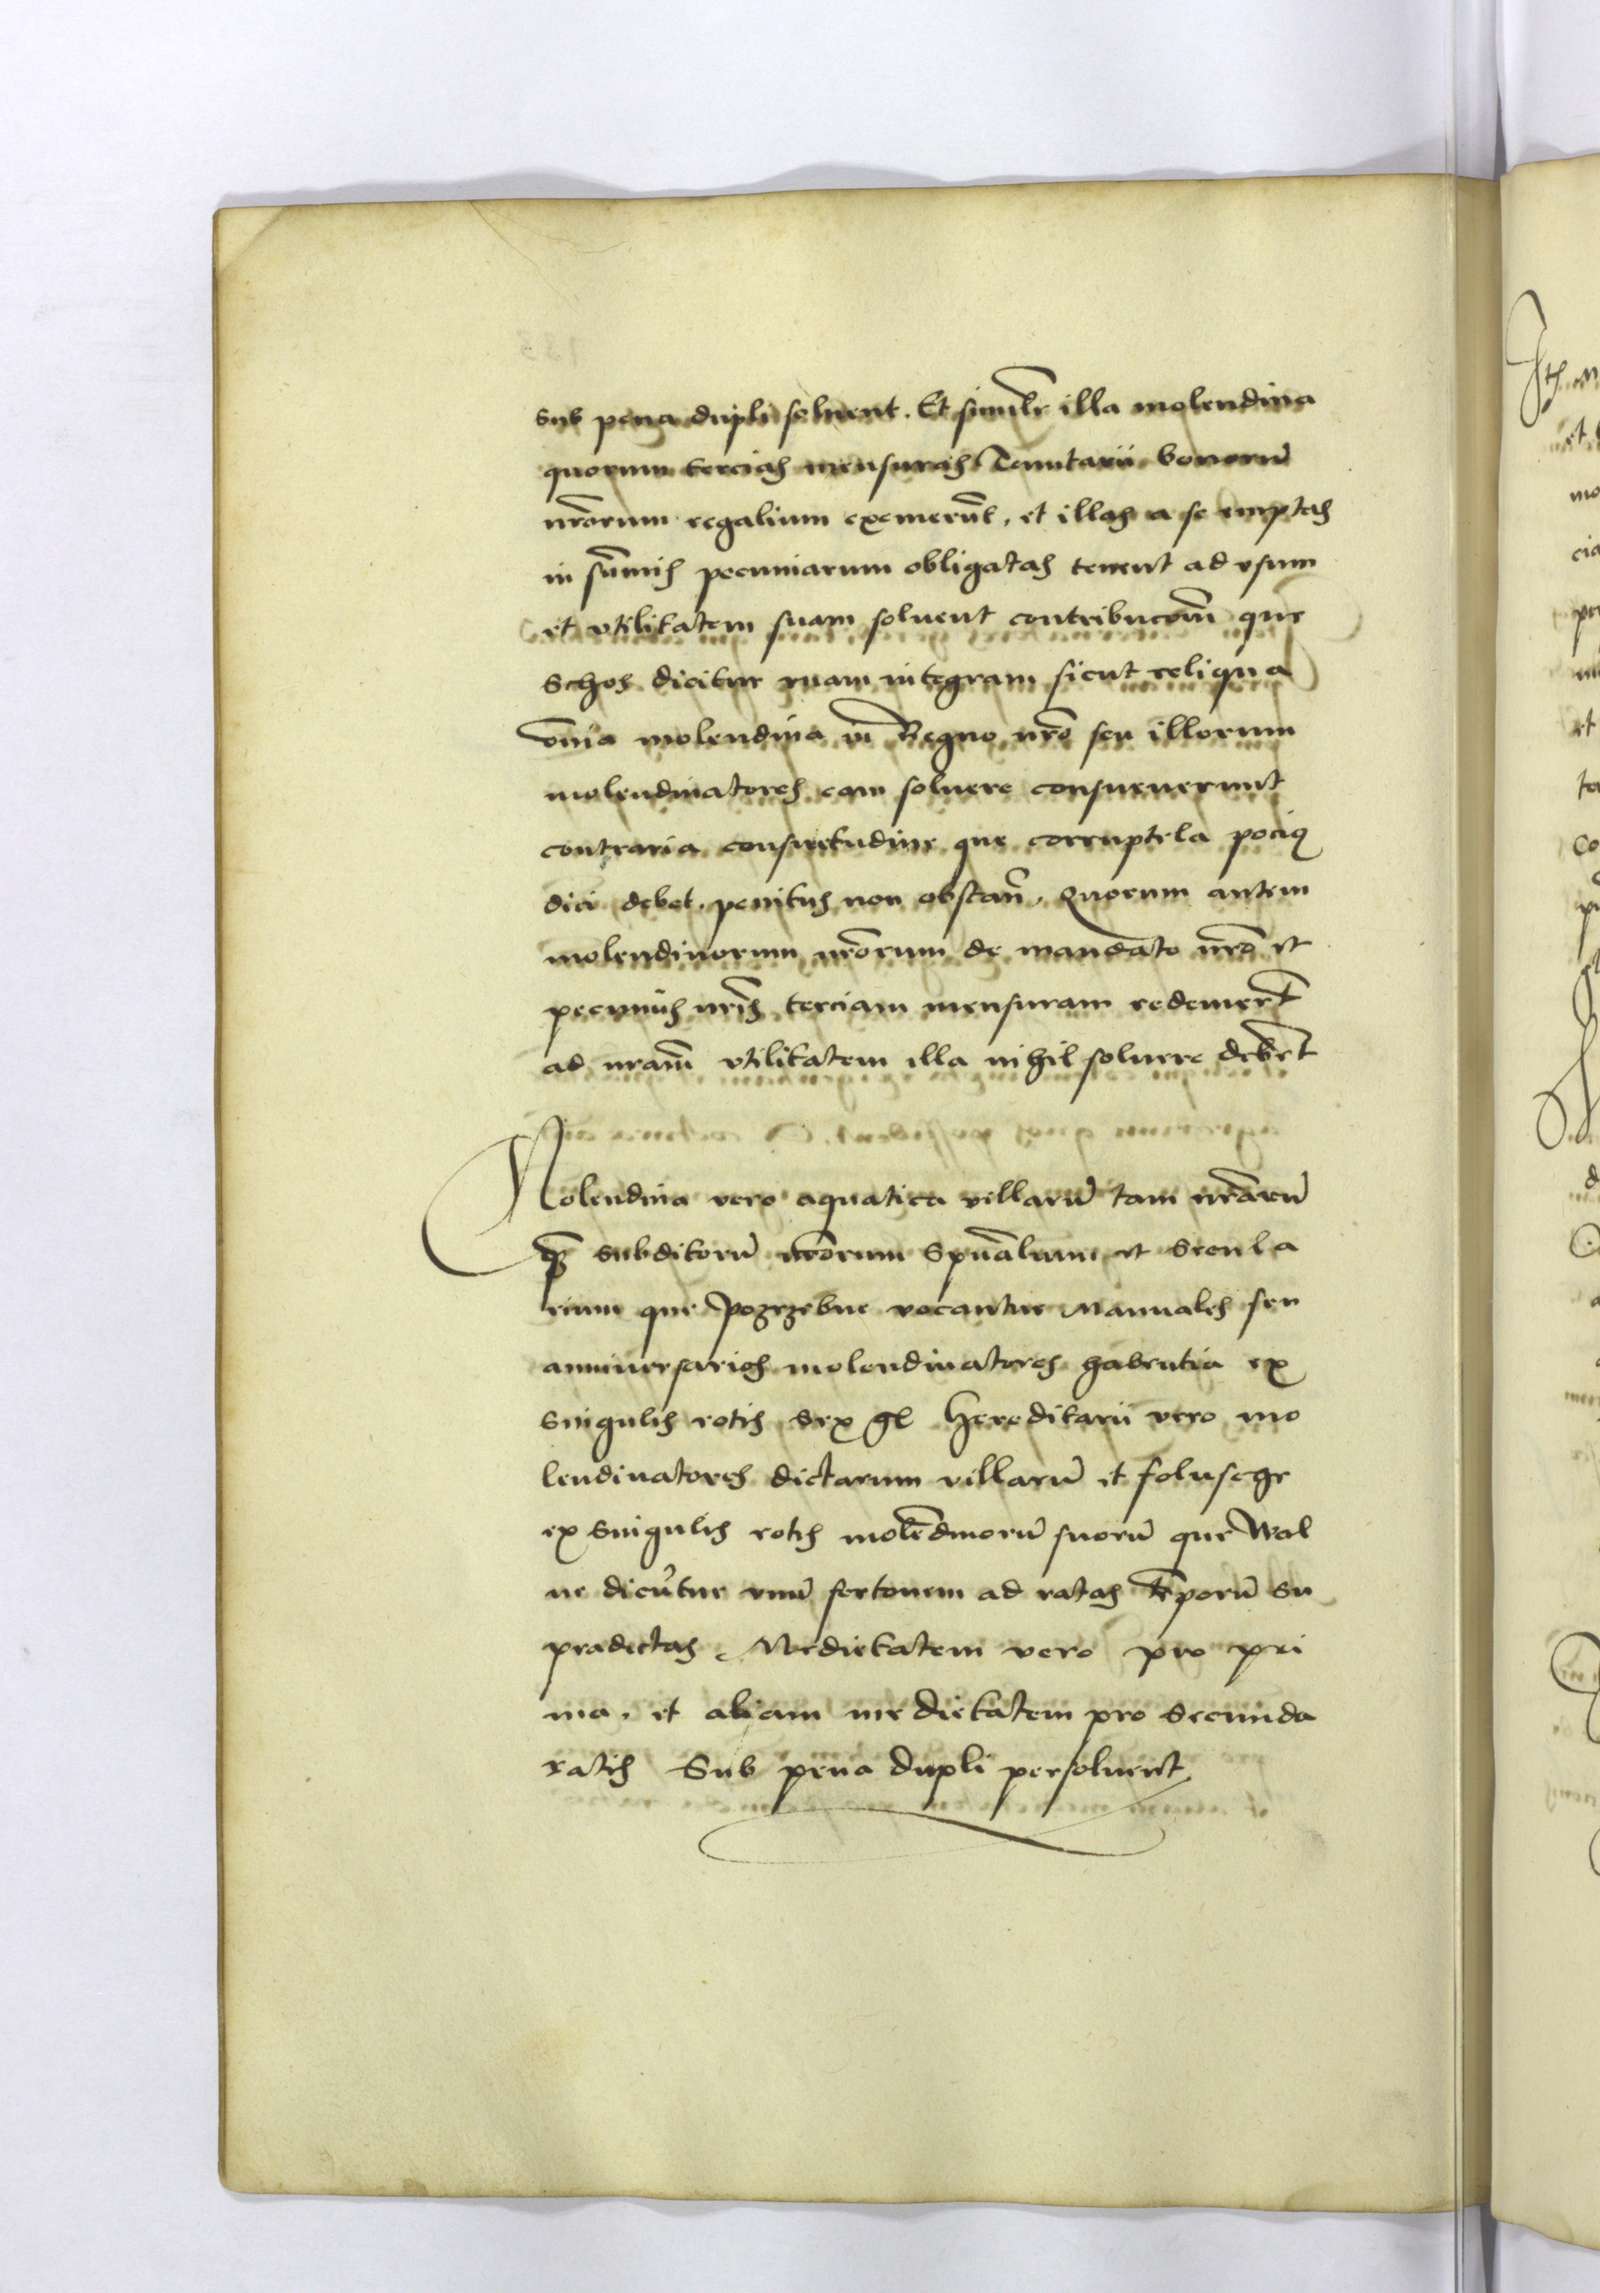 sub pena dupli soluent. Et similr̃ illa molendina
quorum tercias mensuras Tenutarii bonorũ
nr̃orum regalium exemerũt, et illas a se emptas
in sũmis pecuniarum obligatas tenent ad vsum
et vtilitatem suam soluent contribucõm que
Schos dicitur integram sicut reliqua
õnia molendina in Regno nr̃o seu illorum
molendinatores eam soluere consueuerunt
contraria consuetudine que corruptela pociꝰ
dici debet. penitus non obstañ. Quorum autem
molendinorum nr̃orum de mandato nr̃o et
pecuniis nr̃is terciam mensuram redemer̃t
ad nr̃am vtilitatem illa nihil soluere deber̃t
Molendina vero aquatica villarũ tam nr̃arũ
q̃ subditorũ nr̃orum Spũalium et Secula
rium que Pozrzebne vocantur Manuales seu
anniuersarios molendinatores habentia ex
singulis rotis sex gͬ Hereditarii vero mo
lendinatores dictarum villarũ et
ex singulis rotis molẽdinorũ suorũ que Wal
ne dicũtur vnũ fertonem ad ratas tẽporũ su
pradictas Medietatem vero pro pri
ma, et aliam medietatem pro secunda
ratis Sub pena dupli persoluent